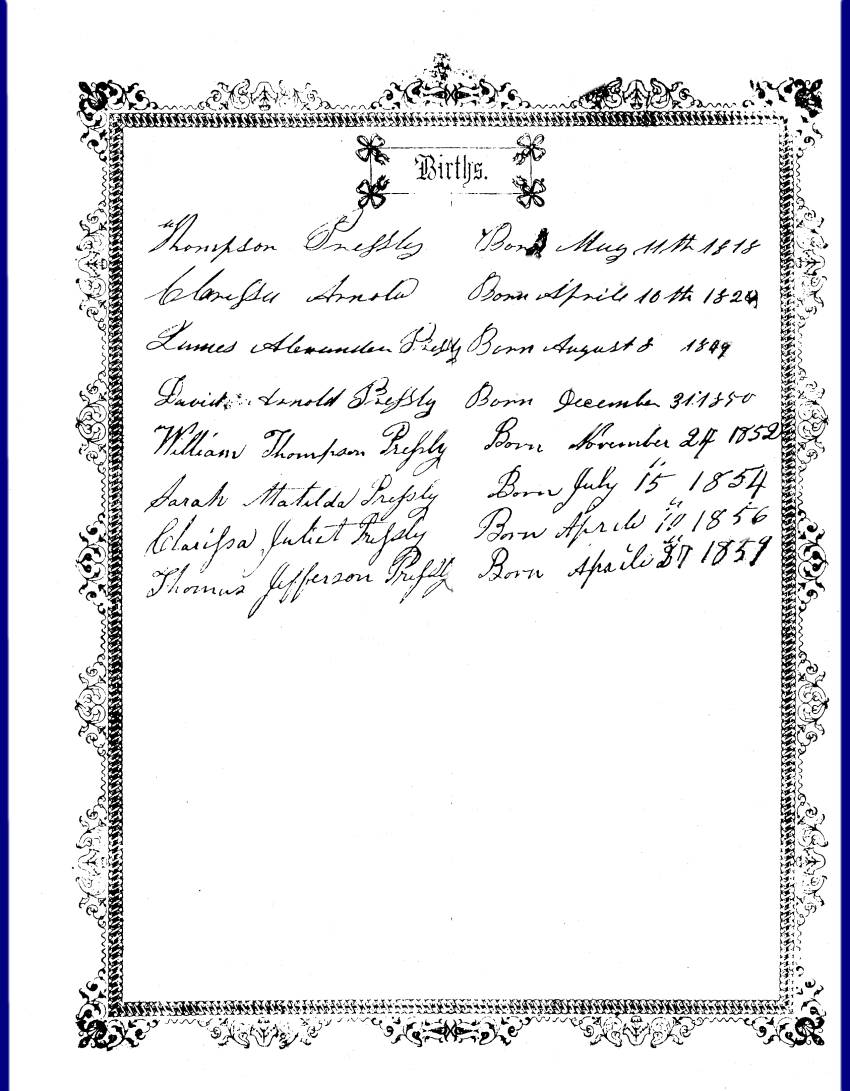 Births.
Thompson Pressly Born May 11th 1818
Clarissa Arnold Born Aprile 10th
James Alexander Pressly Born August 8 1849
David Arnold Pressly Born December 31 1850
William Thompson Pressly Born November 24 1852
Sarah Matilda Pressly Born July 15 1854
Clarissa Juliet Pressly Born Aprile 10 1856
Thomas Jefferson Pressly Born Aprile 27 1859